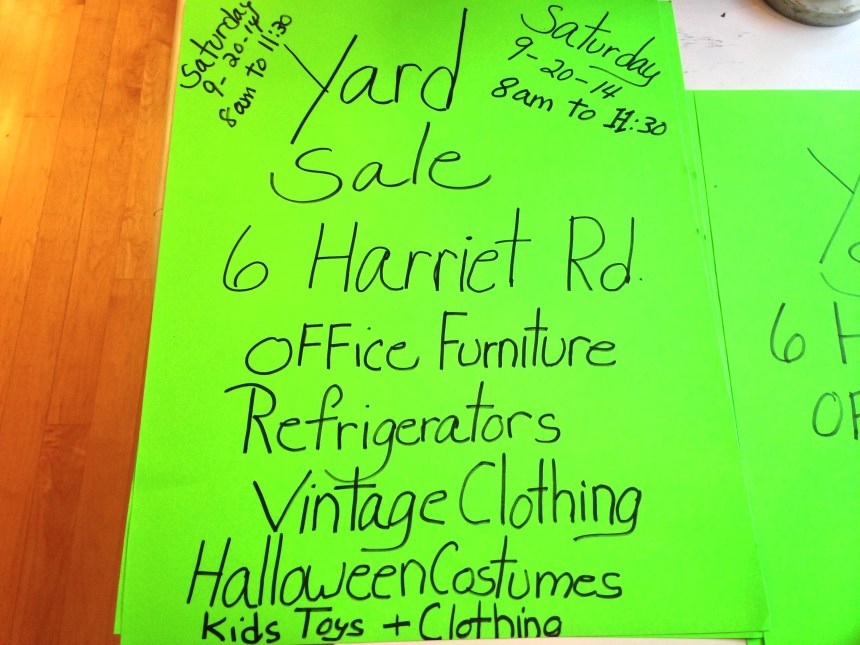 Saturday
9-20-14
8am to 11:30
Saturday
9-20-14
8am to 11:30
Yard
Sale
6 Harriet Rd.
OFFice Furniture
Refrigerators
Vintage Clothing
Halloween Costumes
Kids Toys + Clothing
Y
S
6 H
OF